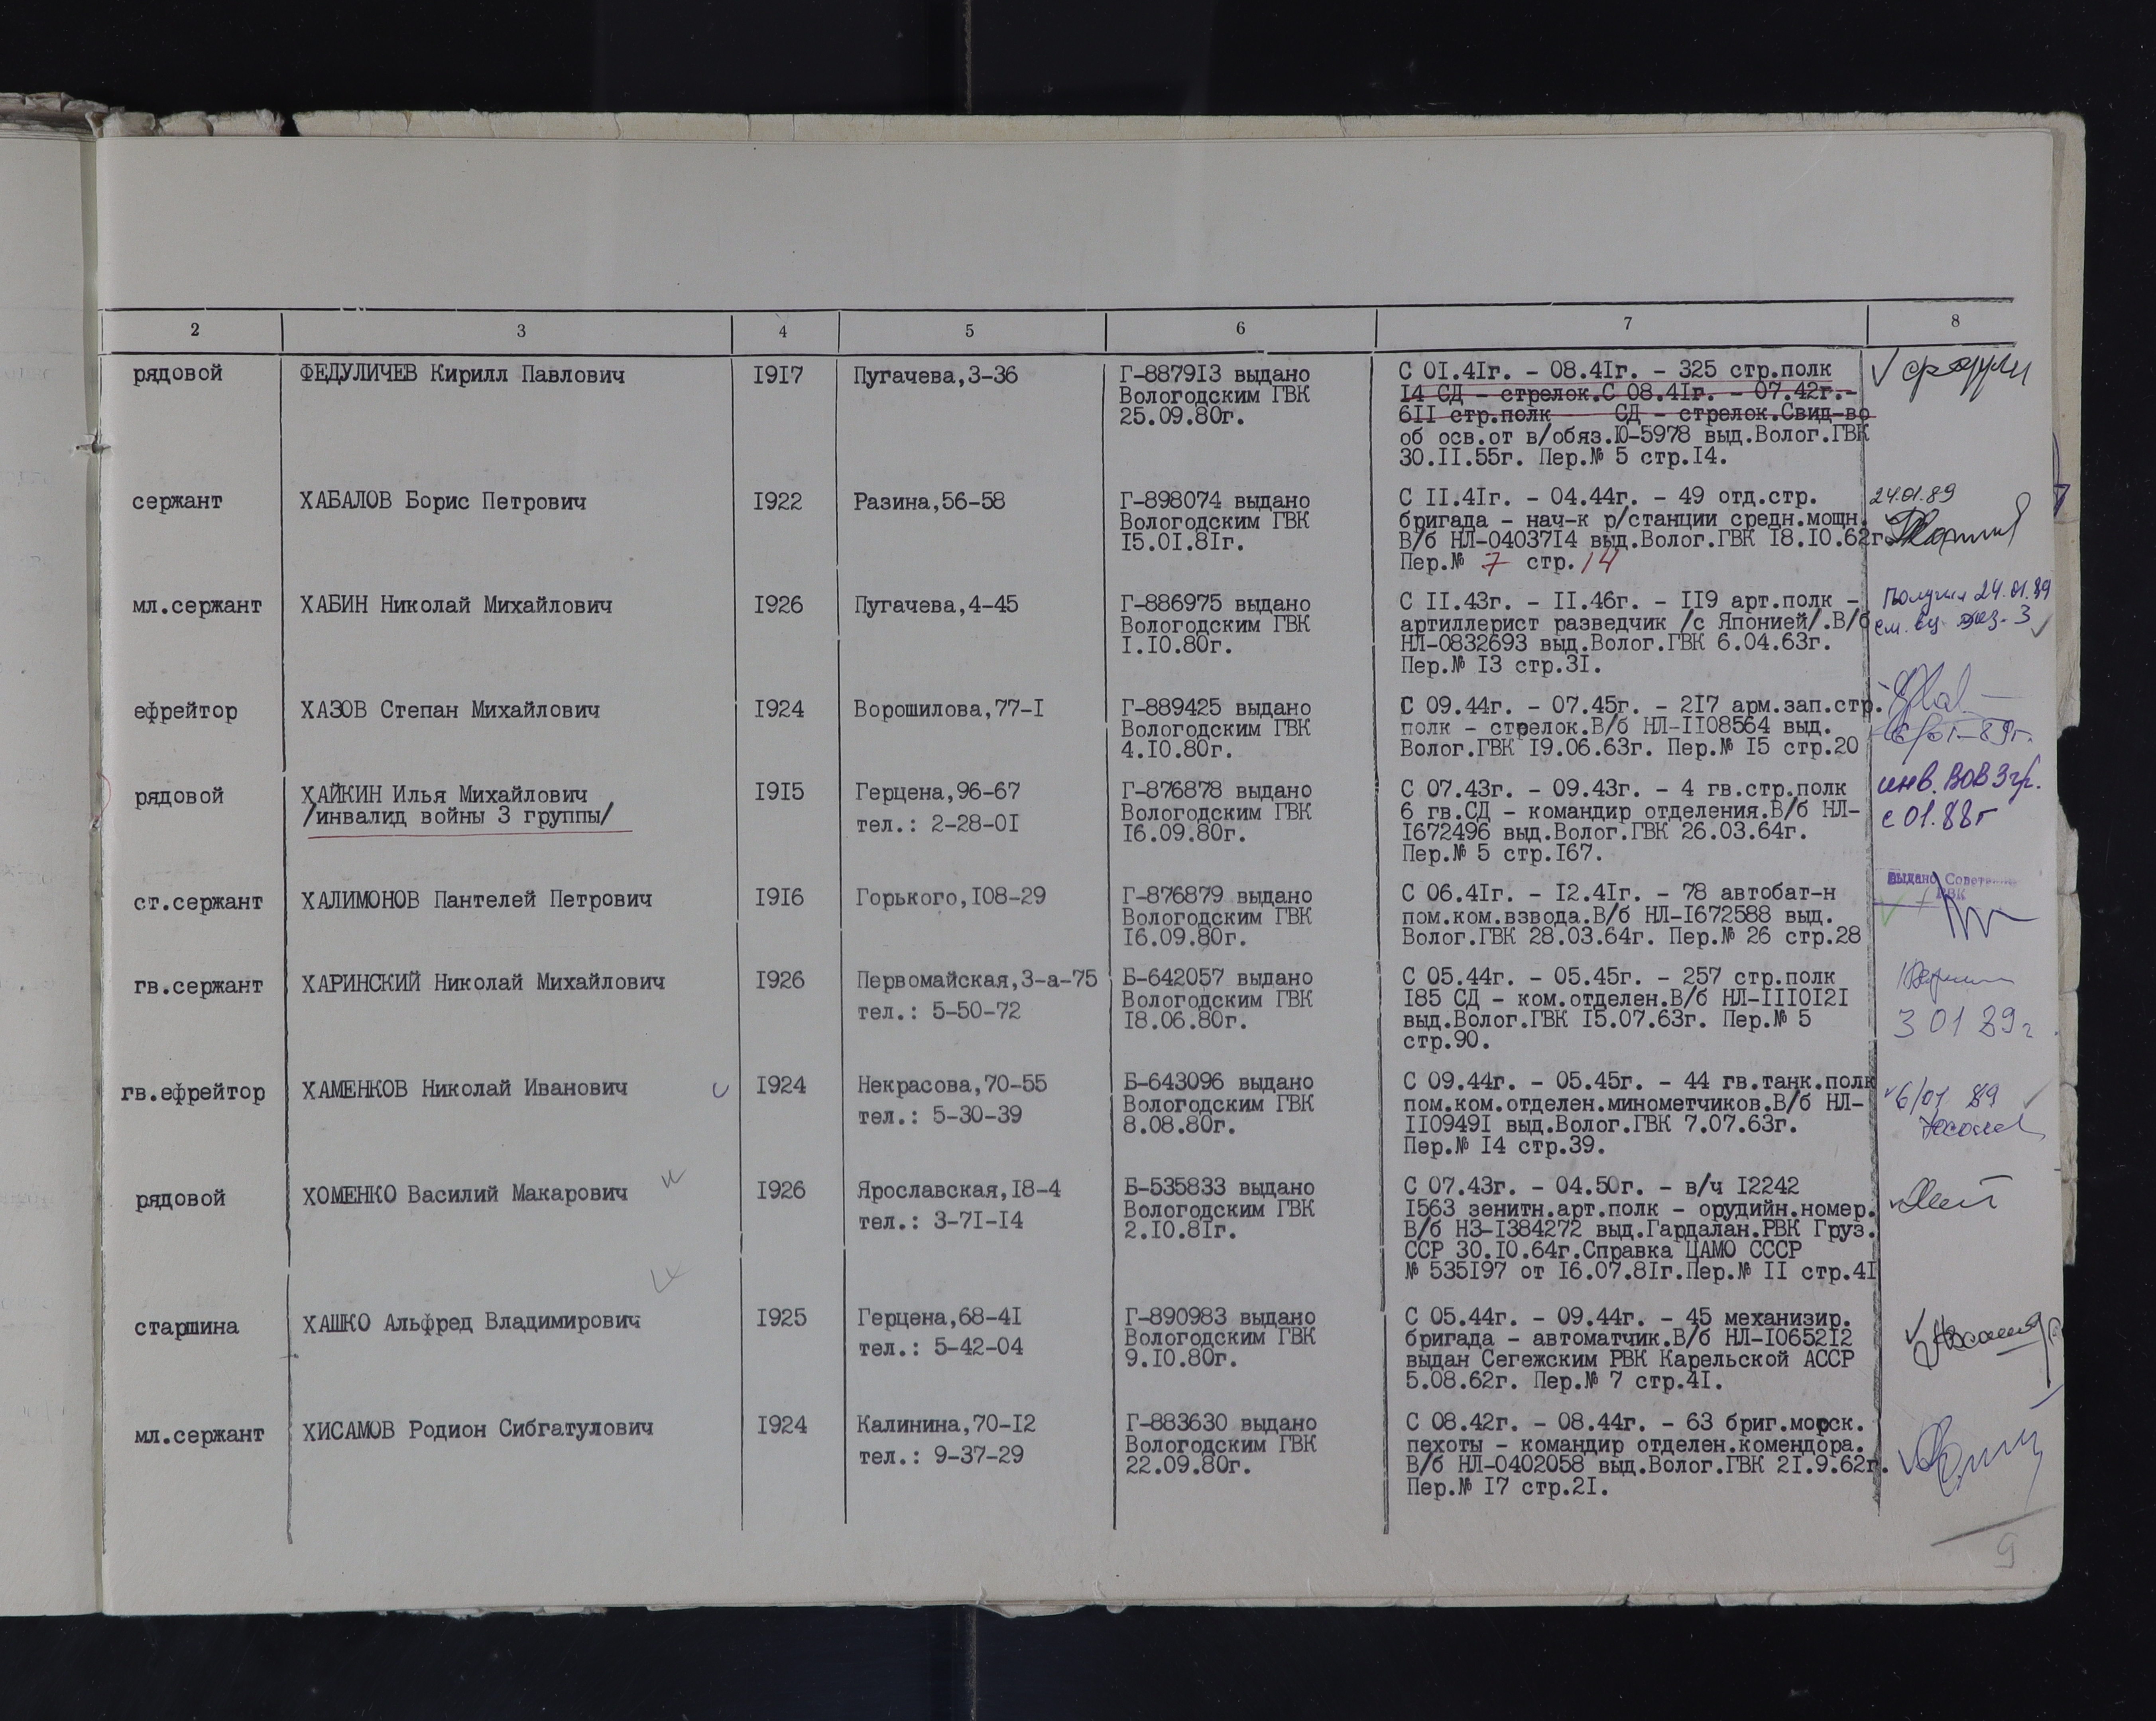 2 3 4 5 6 7 8
рядовой ФЕДУЛИЧЕВ Кирилл Павлович I9I7 Пугачева,3-36 Г-8879I3 выдано С 0I.4Iг. - 08.4Iг. - 325 стр.полк
Вологодским ГВК I4 СД - стрелок.С 08.4Iг. - 07.42г.-
25.09.80г. 6II стр.полк СД - стрелок.Свид-во
об осв.от в/обяз.Ю-5978 выд.Волог.ГВК
30.II.55г. Пер.№ 5 стр.I4.
сержант ХАБАЛОВ Борис Петрович I922 Разина,56-58 Г-898074 выдано С II.4Iг. - 04.44г. - 49 отд.стр. 24.01.89
Вологодским ГВК бригада - нач-к р/станции средн.мощн.
I5.0I.8Iг. В/б НЛ-04037I4 выд.Волог.ГВК I8.I0.62г.
Пер.№ 7 стр.14
мл.сержант ХАБИН Николай Михайлович I926 Пугачева,4-45 Г-886975 выдано С II.43г. - II.46г. - II9 арт.полк - Получил 24.01.89
Вологодским ГВК артиллерист разведчик /с Японией/.В/б см. 3
I.I0.80г. НЛ-0832693 выд.Волог.ГВК 6.04.63г.
Пер.№ I3 стр.3I.
ефрейтор ХАЗОВ Степан Михайлович I924 Ворошилова,77-I Г-889425 выдано С 09.44г. - 07.45г. - 2I7 арм.зап.стр.
Вологодским ГВК полк - стрелок.В/б НЛ-II08564 выд.
4.I0.80г. Волог.ГВК I9.06.63г. Пер.№ I5 стр.20
рядовой ХАЙКИН Илья Михайлович I9I5 Герцена,96-67 Г-876878 выдано С 07.43г. - 09.43г. - 4 гв.стр.полк инв. ВОВ 3гр.
/инвалид войны 3 группы/ тел.: 2-28-0I Вологодским ГВК 6 гв.СД - командир отделения.В/б НЛ- с 01.88г
I6.09.80г. I672496 выд.Волог.ГВК 26.03.64г.
Пер.№ 5 стр.I67.
ст.сержант ХАЛИМОНОВ Пантелей Петрович I9I6 Горького,I08-29 Г-876879 выдано С 06.4Iг. - I2.4Iг. - 78 автобат-н Выдано Советским
Вологодским ГВК пом.ком.взвода.В/б НЛ-I672588 выд. РВК
I6.09.80г. Волог.ГВК 28.03.64г. Пер.№ 26 стр.28
гв.сержант ХАРИНСКИЙ Николай Михайлович I926 Первомайская,3-а-75 Б-642057 выдано С 05.44г. - 05.45г. - 257 стр.полк
тел.: 5-50-72 Вологодским ГВК I85 СД - ком.отделен.В/б НЛ-III0I2I
I8.06.80г. выд.Волог.ГВК I5.07.63г. Пер.№ 5 3 01 89г
стр.90.
гв.ефрейтор ХАМЕНКОВ Николай Иванович I924 Некрасова,70-55 Б-643096 выдано С 09.44г. - 05.45г. - 44 гв.танк.полк 6/01 89
тел.: 5-30-39 Вологодским ГВК пом.ком.отделен.минометчиков.В/б НЛ-
8.08.80г. II0949I выд.Волог.ГВК 7.07.63г.
Пер.№ I4 стр.39.
рядовой ХОМЕНКО Василий Макарович I926 Ярославская,I8-4 Б-535833 выдано С 07.43г. - 04.50г. - в/ч I2242
тел.: 3-7I-I4 Вологодским ГВК I563 зенитн.арт.полк - орудийн.номер.
2.I0.8Iг. В/б НЗ-I384272 выд.Гардалан.РВК Груз.
ССР 30.I0.64г.Справка ЦАМО СССР
№ 535I97 от I6.07.8Iг.Пер.№ II стр.4I
старшина ХАШКО Альфред Владимирович I925 Герцена,68-4I Г-890983 выдано С 05.44г. - 09.44г. - 45 механизир.
тел.: 5-42-04 Вологодским ГВК бригада - автоматчик.В/б НЛ-I0652I2
9.I0.80г. выдан Сегежским РВК Карельской АССР
5.08.62г. Пер.№ 7 стр.4I.
мл.сержант ХИСАМОВ Родион Сибгатулович I924 Калинина,70-I2 Г-883630 выдано С 08.42г. - 08.44г. - 63 бриг.морск.
тел.: 9-37-29 Вологодским ГВК пехоты - командир отделен.комендора.
22.09.80г. В/б НЛ-0402058 выд.Волог.ГВК 2I.9.62г.
Пер.№ I7 стр.2I.
9